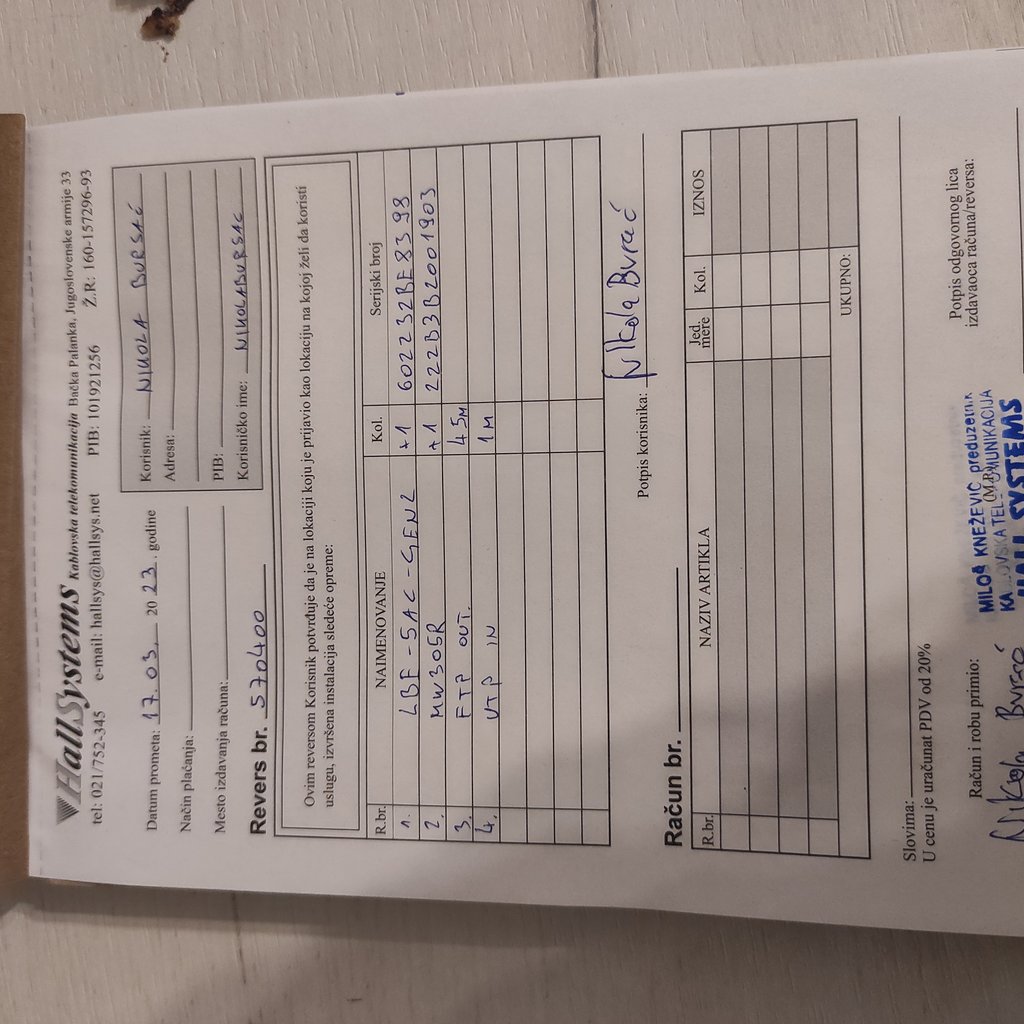 HallSystems Kablovska telekomunikacija Bačka Palanka, Jugoslovenske armije 33
tel: 021/752-345 e-mail: hallsys@hallsys.net PIB: 101921256 Ž.R: 160-157296-93
Datum prometa: 17.03. 2023. godine
Način plaćanja:
Mesto izdavanja računa:
Korisnik: NIKOLA BURSAĆ
Adresa:
PIB:
Korisničko ime: NIKOLABURSAC
Revers br. 570400
Ovim reversom Korisnik potvrđuje da je na lokaciji koju je prijavio kao lokaciju na kojoj želi da koristi
uslugu, izvršena instalacija sledeće opreme:
R.br. NAIMENOVANJE Kol. Serijski broj
1. LBE-5AC-GEN2 *1 602232BE8398
2. MW305R *1 222B3B2001903
3. FTP OUT. 45M
4. UTP IN 1M
Potpis korisnika: Nikola Bursać
Račun br.
R.br. NAZIV ARTIKLA Jed. mere Kol. IZNOS
UKUPNO:
Slovima:
U cenu je uračunat PDV od 20%
Račun i robu primio:
Nikola Bursać
(M.P.)
MILOŠ KNEŽEVIĆ preduzetnik
KABLOVSKA TELEKOMUNIKACIJA
HALL SYSTEMS
Potpis odgovornog lica
izdavaoca računa/reversa: